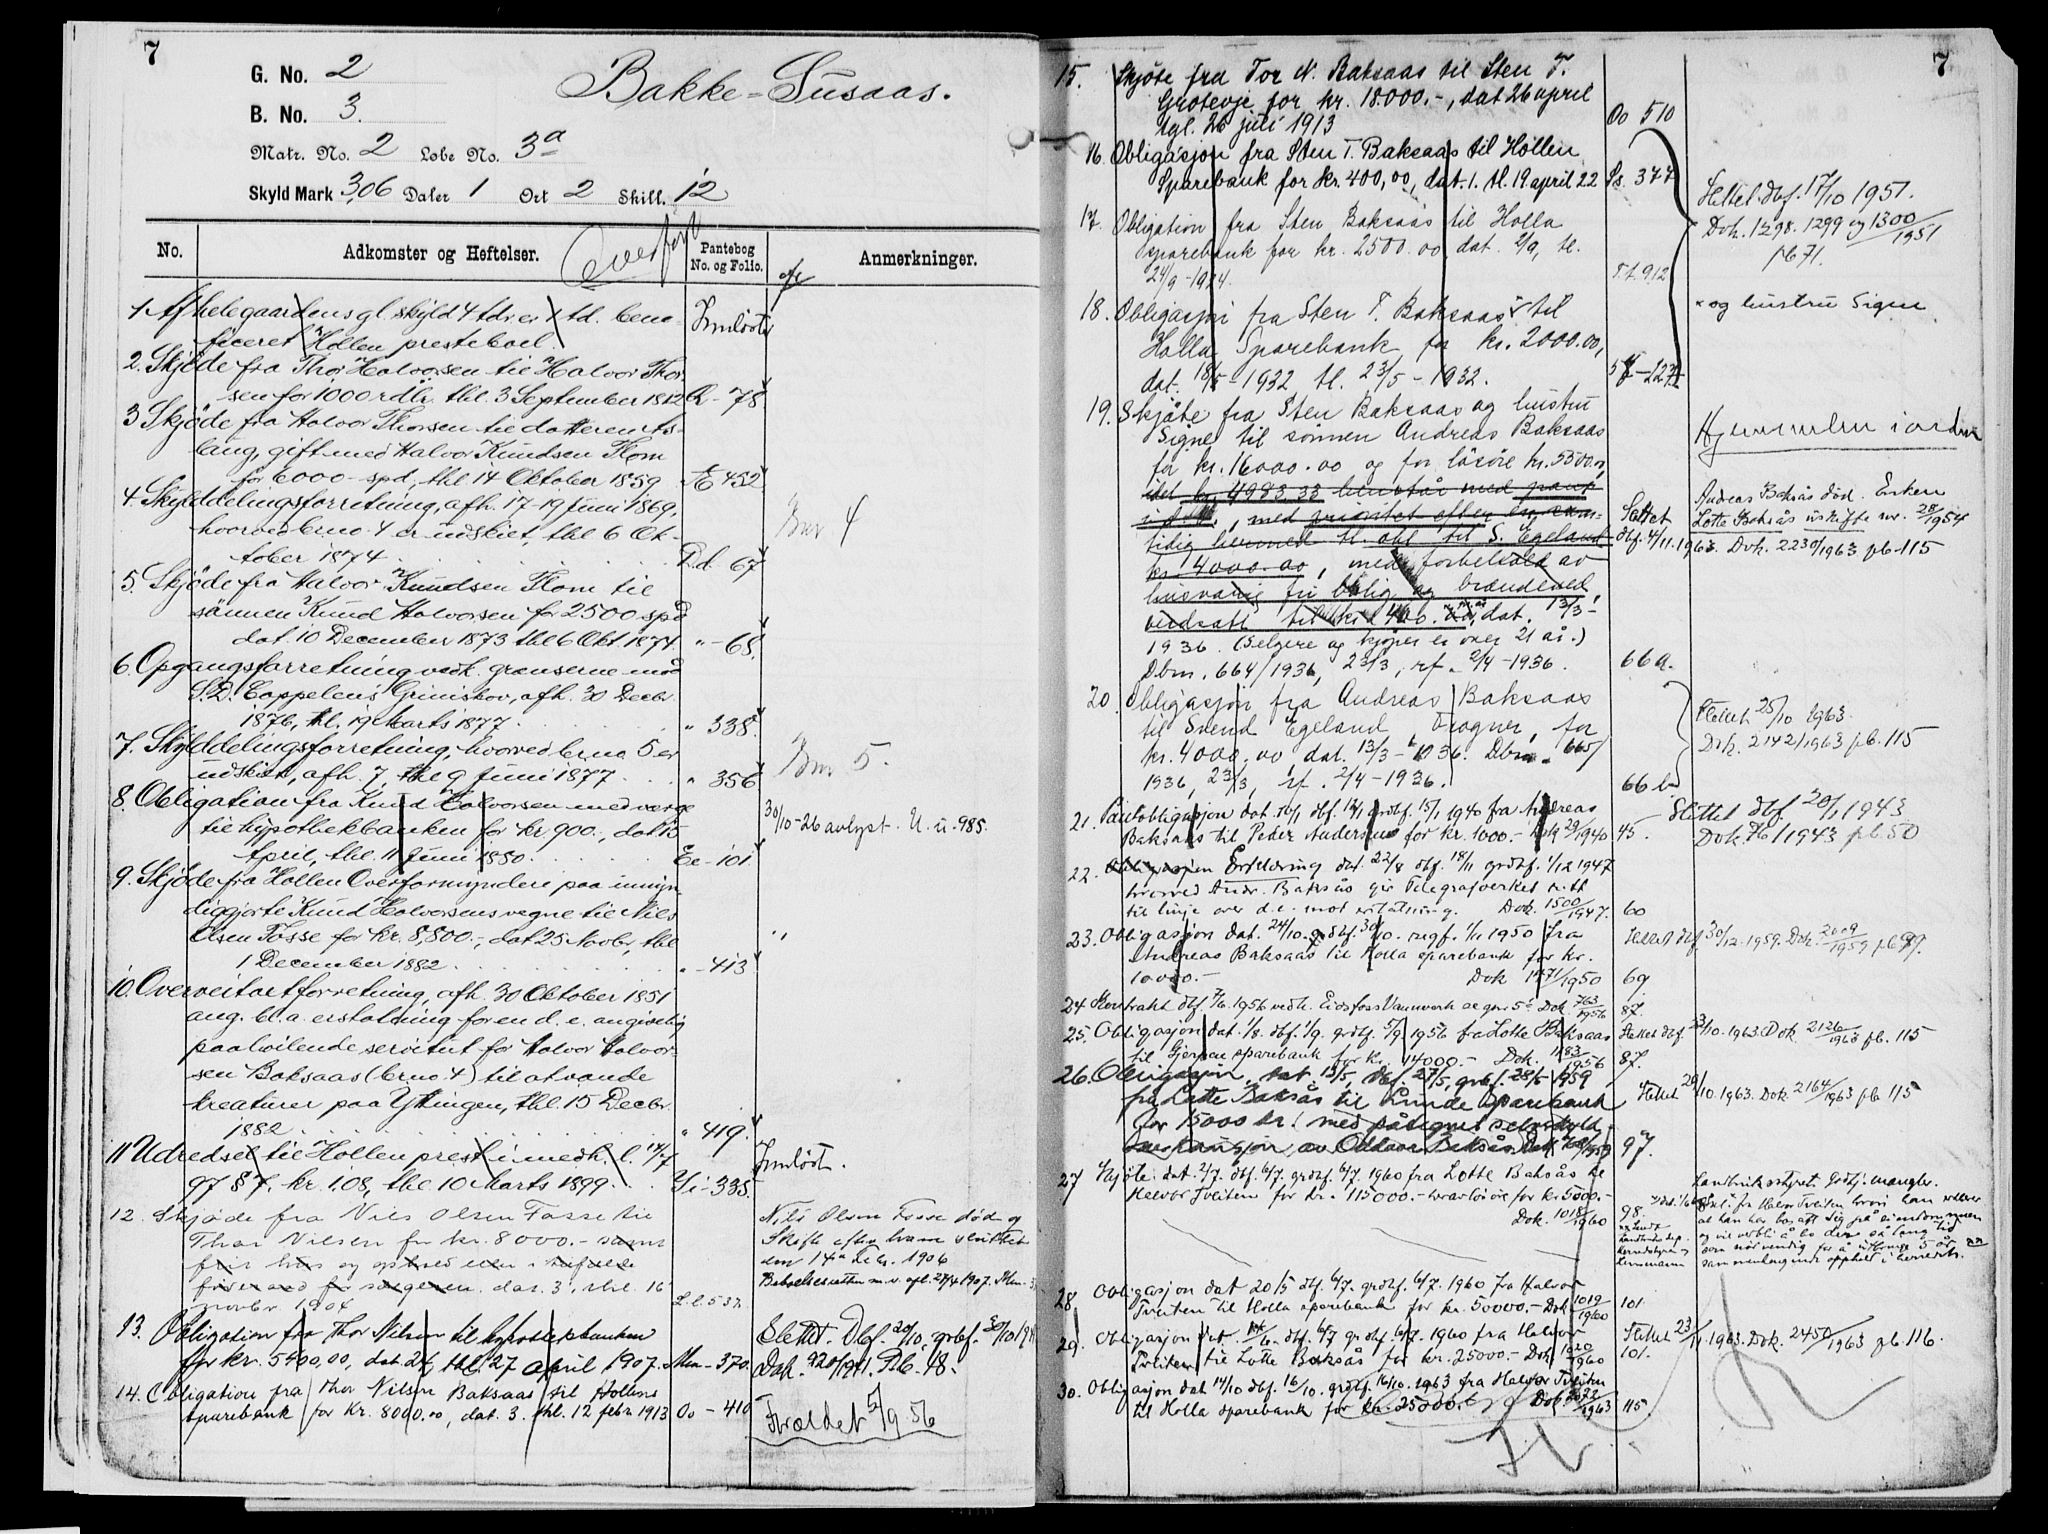 7
G. No. 2
Bakke-Susaas.
B. No. 3.
Matr. No. 2 Løbe No. 3a
Skyld Mark 3,06 Daler 1 Ort 2 Skill. 12
Overført
No.
Adkomster og Heftelser.
Pantebog No. og Folio.
Anmerkninger.
1 Af hele gaardens gl. skyld 4 tdr. er 1 td. bene-
ficeret Hollen presteboel.
Innløst
2. Skjöde fra Thor Halvorsen til Halvor Thor-
sen for 1000 rdlr. thl. 3 September 1812
Q - 78
3 Skjöde fra Halvor Thorsen til datteren As-
laug, gift med Halvor Knudsen Flom
for 6000 - spd, thl 14 Oktober 1859
Æ 452
4. Skylddelingsforretning, afh. 17-19 Juni 1869,
hvorved brno. 4 er udskiet, thl 6 Ok-
tober 1874
D.d. 67
Bnr 4
5. Skjöde fra Halvor Knudsen Flom til
sönnen Knud Halvorsen for 2500 spd
dat. 10 December 1873 thl 6 Okt. 1874.
" - 68.
6. Opgangsforretning vedk. grænserne mod
S. D. Cappelens Grimskov, afh. 30 Decbr.
1876, thl. 19 Marts 1877.
" 338.
7. Skylddelingsforretning, hvorved brno 5 er
udskilt, afh. 7, thl 9 Juni 1877.
" 356
Bnr 5.
8. Obligation fra Knud Halvorsen med værge
til hypothekbanken for kr 900., dat 15
April, thl. 11 Juni 1880.
Ee - 101
30/10-26 avlyst. U. u. 985.
9. Skjöde fra Hollen Overformynderi paa umyn-
diggjorte Knud Halvorsens vegne til Niels
Olsen Fosse for kr. 8,800.-, dat 25 Novbr, thl
1 December 1882.
" - 413
10. Overveitartforretning, afh. 30 Oktober 1851
ang. bl. a. erstatning for en d. e. angivelig
paahvilende servitut for Halvor Halvor-
sen Baksaas (brno 4) til at vande
kreaturer paa Ytingen, thl. 15 Decbr.
1882.
" 419.
11 Udredsel til Hollen prest i medh. l. 14/7
97 § 7, kr. 1.08, thl 10 Marts 1899.
Yi - 335
Innlöst.
12. Skjøde fra Niels Olsen Fosse til
Thor Nilsen for kr. 8000.- samt
dat. 3, thl. 16
novbr. 1904
L.l. 532
Nils Olsen Fosse död og
Skifte efter ham sluttet
den 14de Febr. 1906
13. Obligation fra Thor Nilsen til hypothekbanken
for kr. 5400,00, dat. 24, thl. 27 april 1907.
Mm - 370.
Slettet. Dbf. 20/10, grdbf. 30/10 1941
Dok. 920/1941. P.b. 48.
14. Obligation fra Thor Nilsen Baksaas til Hollens
Sparebank for Kr. 8000,00, dat. 3. thl. 12 febr. 1913
Oo - 410
Foreldet 5/9 56
7
15. Skjöte fra Tor N. Baksaas til Sten T.
Grotevje for kr. 18.000.-, dat 26 april
tgl. 26 juli 1913
Oo 510
16. Obligasjon fra Sten T. Baksaas til Hollen
Sparebank for kr. 400,00, dat. 1. tl. 19 april 22
Ss. 377
Slettet dbf. 17/10 1951.
Dok. 1298. 1299 og 1300/1951
pb 71.
17. Obligation fra Sten Baksaas til Holla
sparebank for kr. 2500.00, dat. 2/9, tl.
24/9 - 1924.
T.t. 912
18. Obligasjon fra Sten T. Baksaas x til
Holla Sparebank for kr. 2000.00,
dat. 18/5 - 1932, tl. 23/5 - 1932.
x og hustru Signe
19. Skjöte fra Sten Baksaas og hustru
Signe til sönnen Andreas Baksaas
for kr. 16000.00 og for lösöre kr. 5500.00,
idet kr. 4983.33 henstår med pant
i d. e., med prioritet efter en sam-
tidig hermed tl. obl. til S. Egeland
kr. 4000.00, med forbehold av
husvarig fri bolig og brændeved
verdsatt til kr. 400. dat. 13/3 -
1936. (Selgere og kjöper er over 21 år.)
Dbm. 664/1936, 23/3, rf. 2/4 - 1936.
66 a.
Hjemmelen i orden
Slettet
dbf. 4/11. 1963. Dok. 2230/1963 pb. 115
Andreas Baksås död. Enken
Lotte Baksås uskifte nr. 28/1954
20. Obligasjon fra Andreas Baksaas
til Svend Egeland Frogner, for
kr. 4000,00, dat. 13/3 - 1936. Dbm. 665/
1936, 23/3, rf. 2/4 - 1936.
66 b
Slettet 25/10 1963.
Dok. 2142/1963 pb. 115
21. Pantobligasjon dat. 10/1 dbf. 12/1 grdbf. 15/1 1940 fra Andreas
Baksaas til Peder Andersen for kr. 1000.- Dok 29/1940
45.
Slettet dbf 20/1 1943
Dok. 76/1943 pb. 50
22. Obligasjon Erklæring dat. 22/8 dbf. 18/11 grdbf. 1/12 1947
hvorved Andr. Baksås gir Telegrafverket rett
til linje over d.e. mot erstatning. Dok. 1500/1947.
60
23. Obligasjon dat. 24/10. grdbf. 30/10. regf. 1/11 1950 fra
Andreas Baksaas til Holla sparebank for kr.
10000.- Dok 1471/1950
69
Slettet dbf 30/12. 1959. Dok. 2009/1959 pb 99.
24 Kontrakt dbf. 7/6. 1956 vedk. Eidsfoss Vannverk se gnr. 5/2 Dok. 763/1956
87.
25. Obligasjon dat. 1/8. dbf. 1/9. grdbf. 5/9 1956 fra Lotte Baksaas
til Gjerpen sparebank for kr. 14000.- Dok. 1183/1956
87.
Slettet dbf. 23/10. 1963. Dok 2126/1963 pb. 115
26. Obligasjon, dat 13/5, dbf. 27/5, grbf. 28/5 1959
fra Lotte Baksås til Lunde Sparebank
for 15000 kr. med påtegnet selvskyld-
nerkausjon av Oddvar Baksås Dok
97.
Slettet 29/10. 1963. Dok 2164/1963 pb 115
27 Skjöte dat. 2/7. dbf. 6/7. grdbf. 6/7. 1960 fra Lotte Baksås til
Halvor Tveiten for kr. 115000.- hvorav lösöre for kr 5000.-
Dok. 1018/1960
98.
Landbruksstyret. Godkj. mangler.
Erkl. fra Halvor Tveiten hvori han erklærer
at han har bosatt sig på eiendommen
og vil verbli å bo der så lang tid
som nödvendig for å utbringe 5 års
sammenhengende opphold i herredet.
28. Obligasjon dat 20/5 dbf. 6/7. grdbf. 6/7. 1960 fra Halvor
Tveiten til Holla sparebank for kr. 50000.- Dok 1019/1960
101.
29. Obligasjon dat. dbf. 6/7 grdbf. 6/7. 1960 fra Halvor
Tveiten til Lotte Baksås for kr. 25000.- Dok 1020/1960
101.
Slettet 23/11. 1963. Dok. 2450/1963 pb. 116.
30. Obligasjon dat 14/10 dbf. 16/10. grdbf. 16/10. 1963 fra Halvor Tveiten
til Holla sparebank for kr. 25000.- Dok 2072/1963
115.